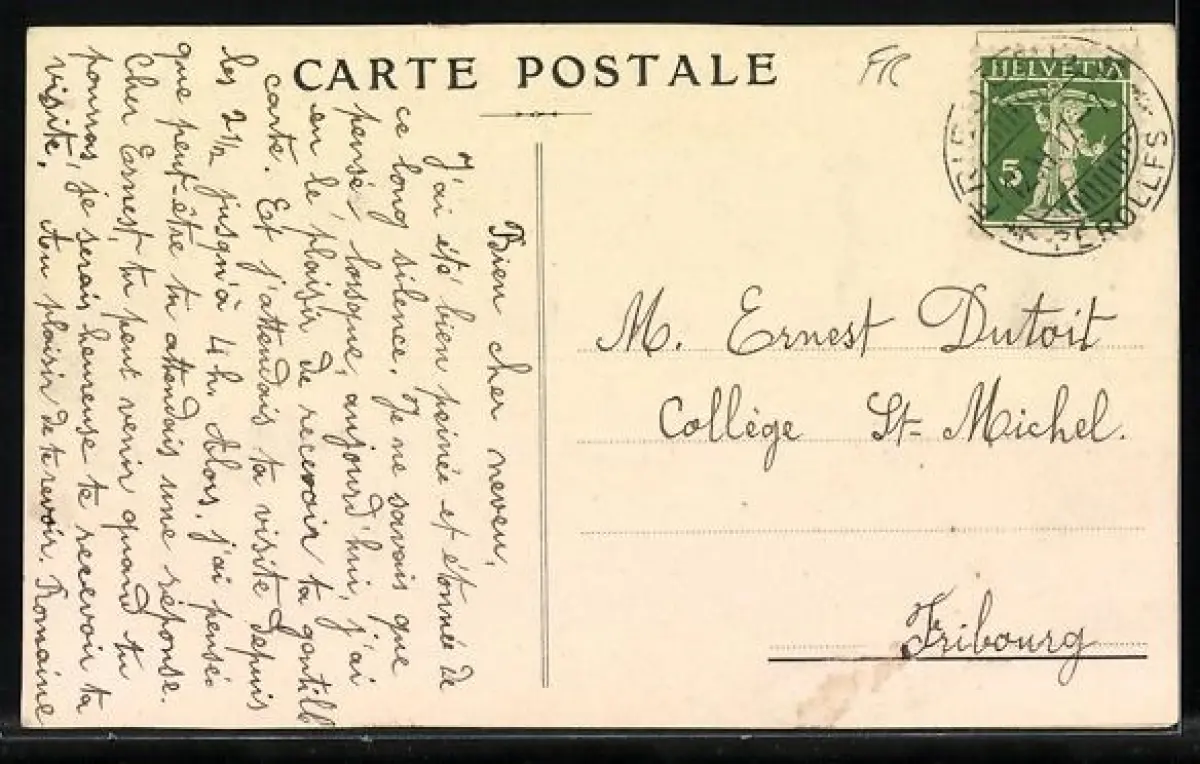 CARTE POSTALE
FR
HELVETIA
5
PEROLLES
Bien cher neveu,
J'ai été bien peinée et étonnée de
ce long silence. Je ne savais que
penser, lorsque, aujourd'hui, j'ai
eu le plaisir de recevoir ta gentille
carte. Est j'attendais ta visite depuis
les 2 1/2 jusqu'à 4 h. Alors, j'ai pensé:
que peut-être tu attendais une réponse.
Cher Ernest, tu peut venir quand tu
pourras, je serais heureuse te recevoir ta
visite. Au plaisir de te revoir. Romaine
M. Ernest Dutoit
Collège St-Michel.
Fribourg